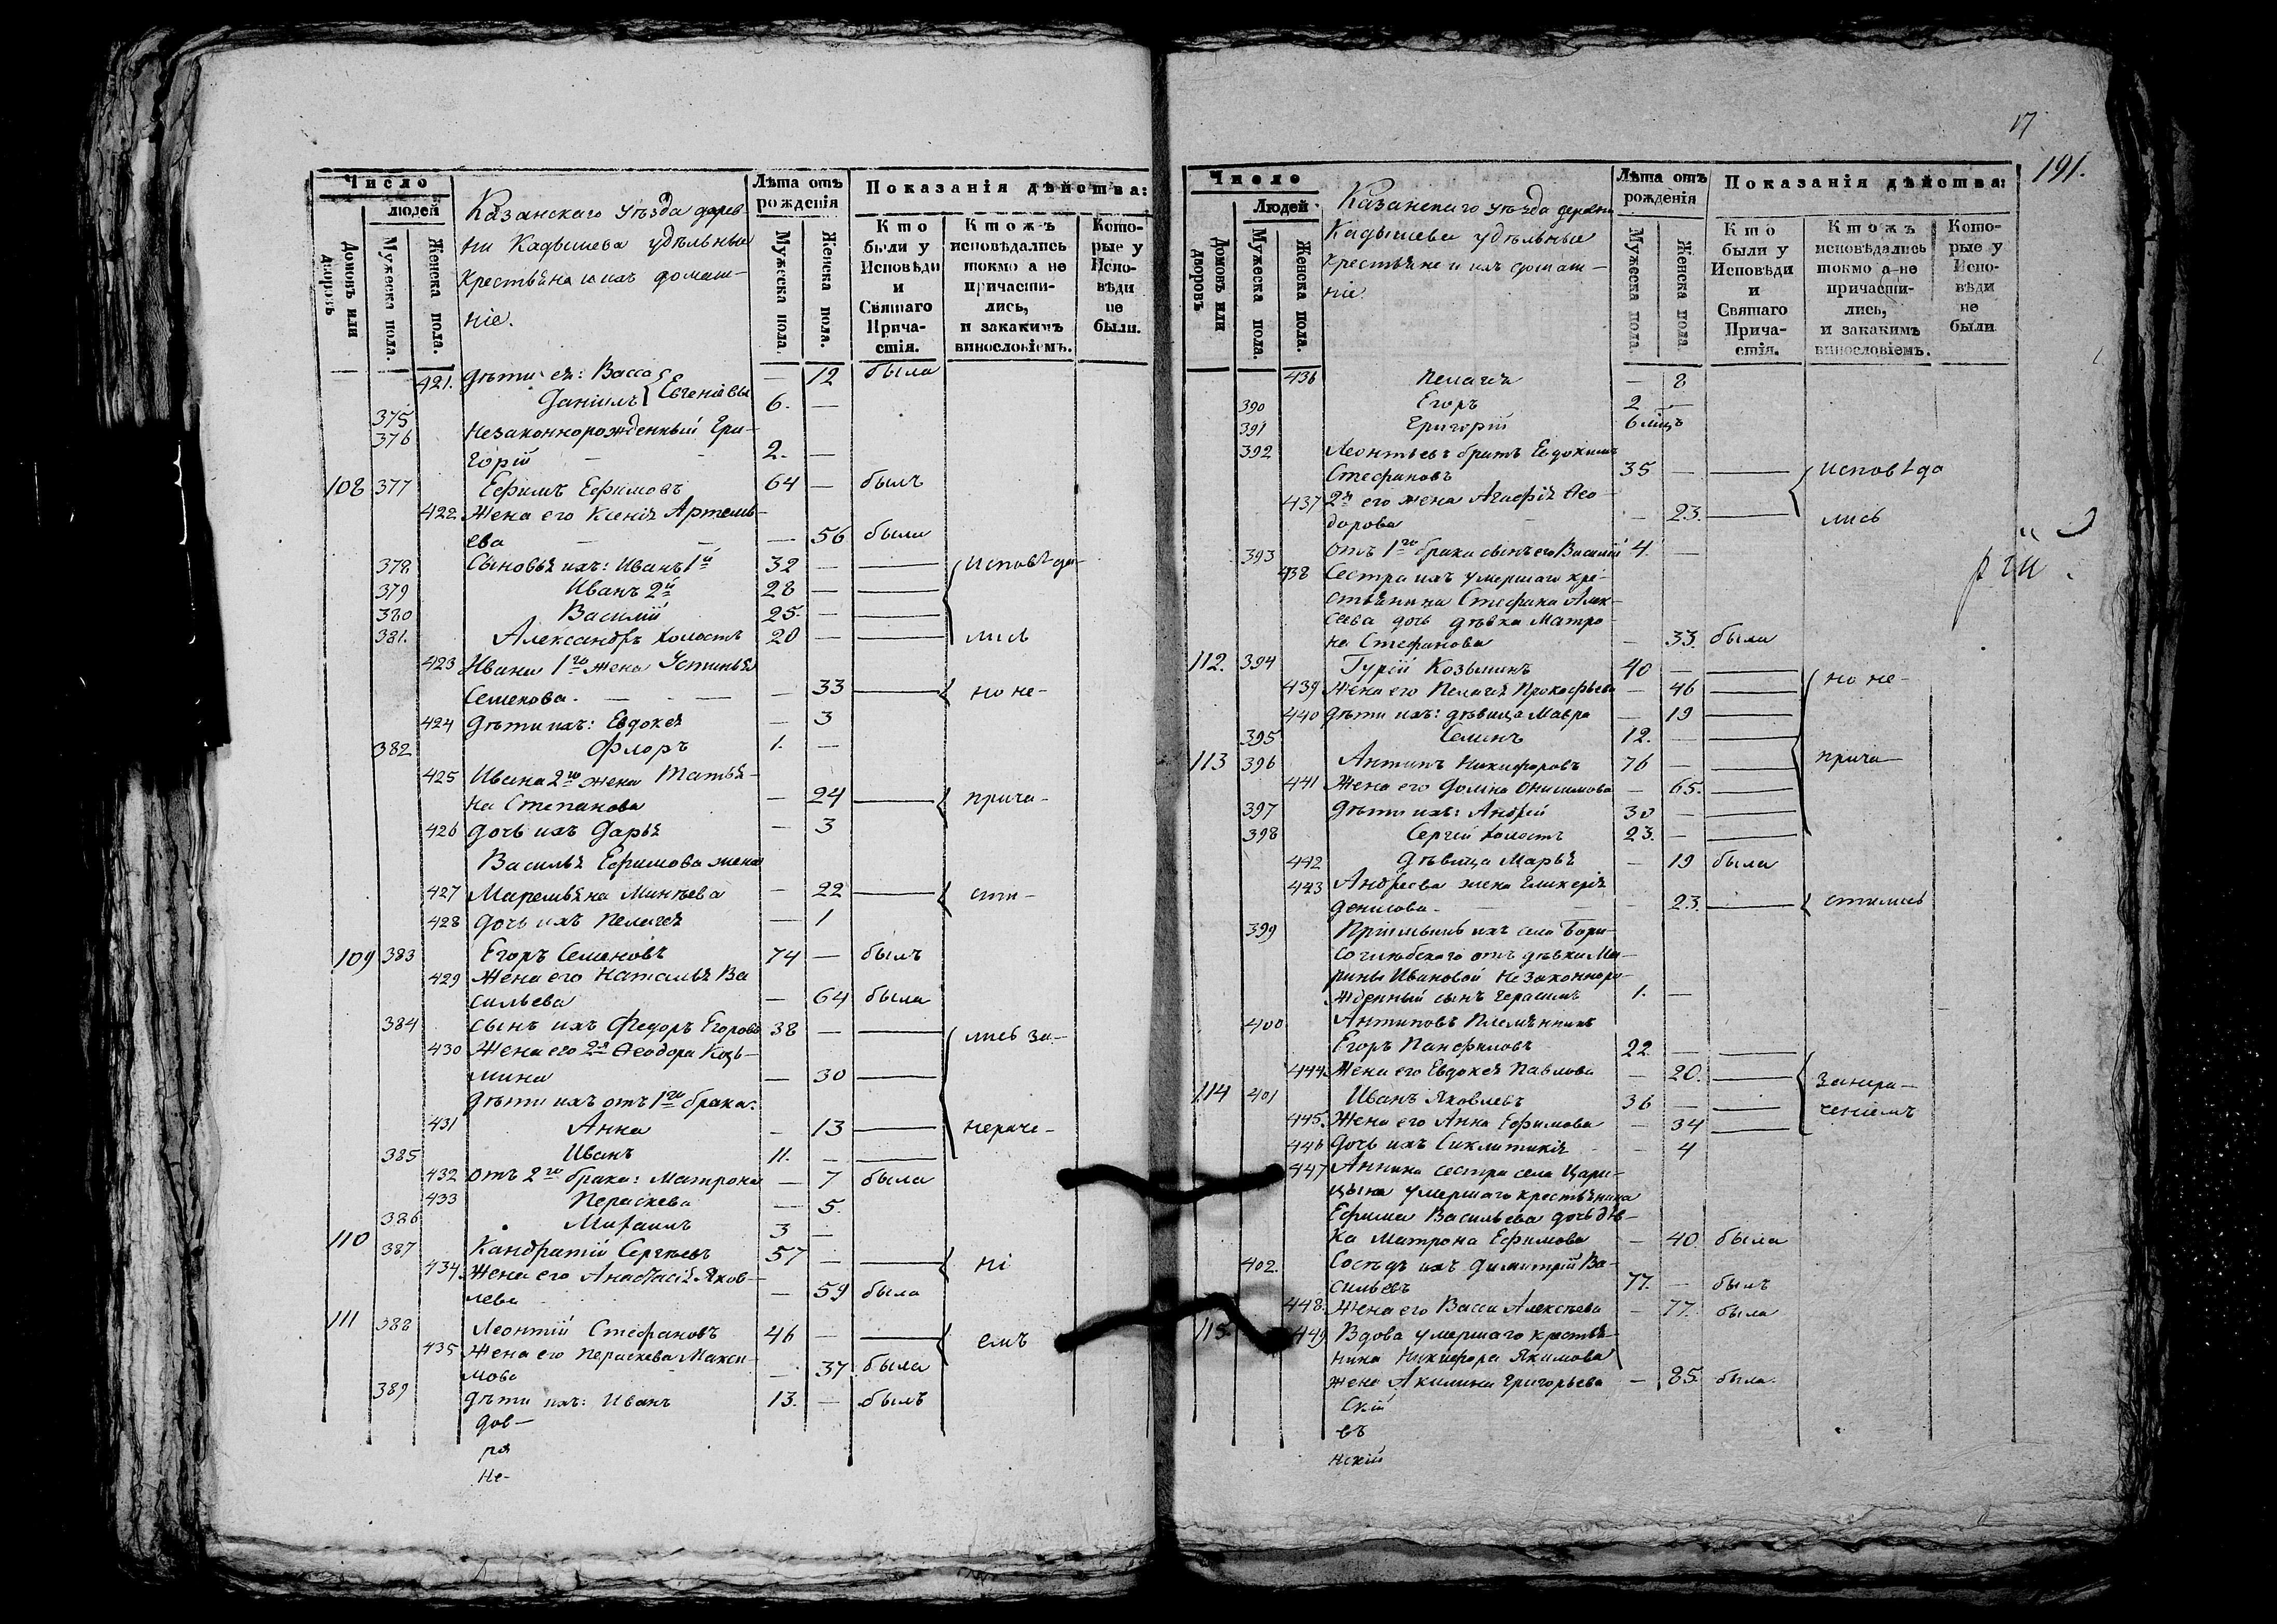 Число
людей
Домовъ или дворовъ
Мужеска пола.
Женска пола.
Казанскаго Уѣзда дерев-
ни Кадышева удѣльныя
крестьяна и ихъ домаш-
ніе.
Лѣта отъ рожденія
Мужеска пола.
Женска пола.
Показанія дѣйства:
Кто были у Исповѣди и Святаго Прича- стія.
Ктожъ исповѣдались токмо а не причасти- лись, и закакимъ винословіемъ.
Кото- рые у Испо- вѣди не были.
421. дѣти ея: Васса — 12 была
375 Даніилъ } Евгеніевы 6. —
376 Незаконнорожденный Гри-
горій — - 2. —
108 377 Ефимъ Ефимовъ 64 — былъ
422 Жена его Ксенія Артемь-
ева — — — 56 была
378 Сыновья ихъ: Иванъ 1й 32 — — Исповѣда-
379 Иванъ 2й 28 — —
380 Василій 25. — —
381. Александръ холостъ 20 — — лись
423 Ивана 1го жена Устинья
Семенова. — — — 33 — но не-
424 дѣти ихъ: Евдокея — 3
382 Флоръ 1. —
425 Ивана 2го жена Татья-
на Степанова — 24 — прича-
426 дочь ихъ Дарья — 3
Василья Ефимова жена
427 Маремьяна Минѣева — 22 — сти-
428 дочь ихъ Пелагея — 1
109 383 Егоръ Семеновъ 74 — былъ
429 Жена его Наталья Ва
сильева — 64 была
384 сынъ ихъ Федоръ Егоровъ 38 — — лись за-
430 Жена его 2я Ѳеодора Козь-
мина — 30 —
дѣти ихъ отъ 1го брака:
431 Анна — 13 — нераче-
385 Иванъ 11. —
432 отъ 2го брака: Матрона — 7 была
433 Параскева — 5.
386 Михаилъ 3 —
110 387 Кандратій Сергѣевъ 57 — — ні
434. Жена его Анастасія Яков-
лева — 59 была
111 388 Леонтій Стефановъ 46 — — емъ
435 Жена его Параскева Макси-
мова — 37. была
389 дѣти ихъ: Иванъ 13. — былъ
дов-
ря
не-
17
191.
Число
Людей
Домовъ или дворовъ
Мужеска пола.
Женска пола.
Казанскаго уѣзда деревни
Кадышева удѣльные
крестьяне и ихъ домаш-
ніе.
Лѣта отъ рожденія
Мужеска пола.
Женска пола
Показанія дѣйства:
Кто были у Исповѣди и Святаго Прича- стія.
Ктожъ исповѣдались токмо а не причасти- лись, и закакимъ винословіемъ.
Кото- рые у Испо- вѣди не были
436 Пелагея — 8
390 Егоръ 2 —
391 Григорій 6 мцъ
392 Леонтьевъ братъ Евдокимъ
Стефановъ 35 — — Исповѣда
437 2я его жена Агафія Ѳео-
дорова — 23. — лись
393 отъ 1го брака сынъ его Василій 4. —
438 Сестра ихъ умершаго кре-
стьянина Стефана Алек-
сѣева дочь дѣвка Матро
на Стефанова — 33 была
112. 394 Гурій Козьминъ 40 — — но не-
439 Жена его Пелагея Прокофьева — 46 —
440 дѣти ихъ: дѣвица Мавра — 19 —
395 Семенъ 12. — —
113 396 Антипъ Никифоровъ 76 — — прича-
441 Жена его Домна Онисимова — 65. —
397 дѣти ихъ: Андрей 30 — —
398 Сергій холостъ 23. — —
442 дѣвица Марья — 19 была
443 Андреева жена Гликерія
денисова. — — 23. — стились
399 Пріимышъ ихъ села Бори-
соглѣбскаго отъ дѣвки Ма-
рины Ивановой Незаконноро-
жденный сынъ Герасимъ 1. —
400 Антиповъ Племянникъ
Егоръ Панфиловъ 22. — —
444. Жена его Евдокея Павлова — 20. — занера-
114 401 Иванъ Яковлевъ 36 — — ченіемъ
445. Жена его Анна Ефимова — 34 —
446 Дочь ихъ Синклитикія — 4
447 Аннина сестра села Цари-
цына умершаго крестьянина
Ефима Васильева дочь дѣв-
ка Матрона Ефимова — 40. была
402. Сосѣдъ ихъ Димитрій Ва-
сильевъ 77. — былъ
448. Жена его Васса Алексѣева — 77. была
115. 449 Вдова умершаго крестья-
нина Никифора Якимова
жена Акилина Григорьева — 85. была.
скій
въ
нскій